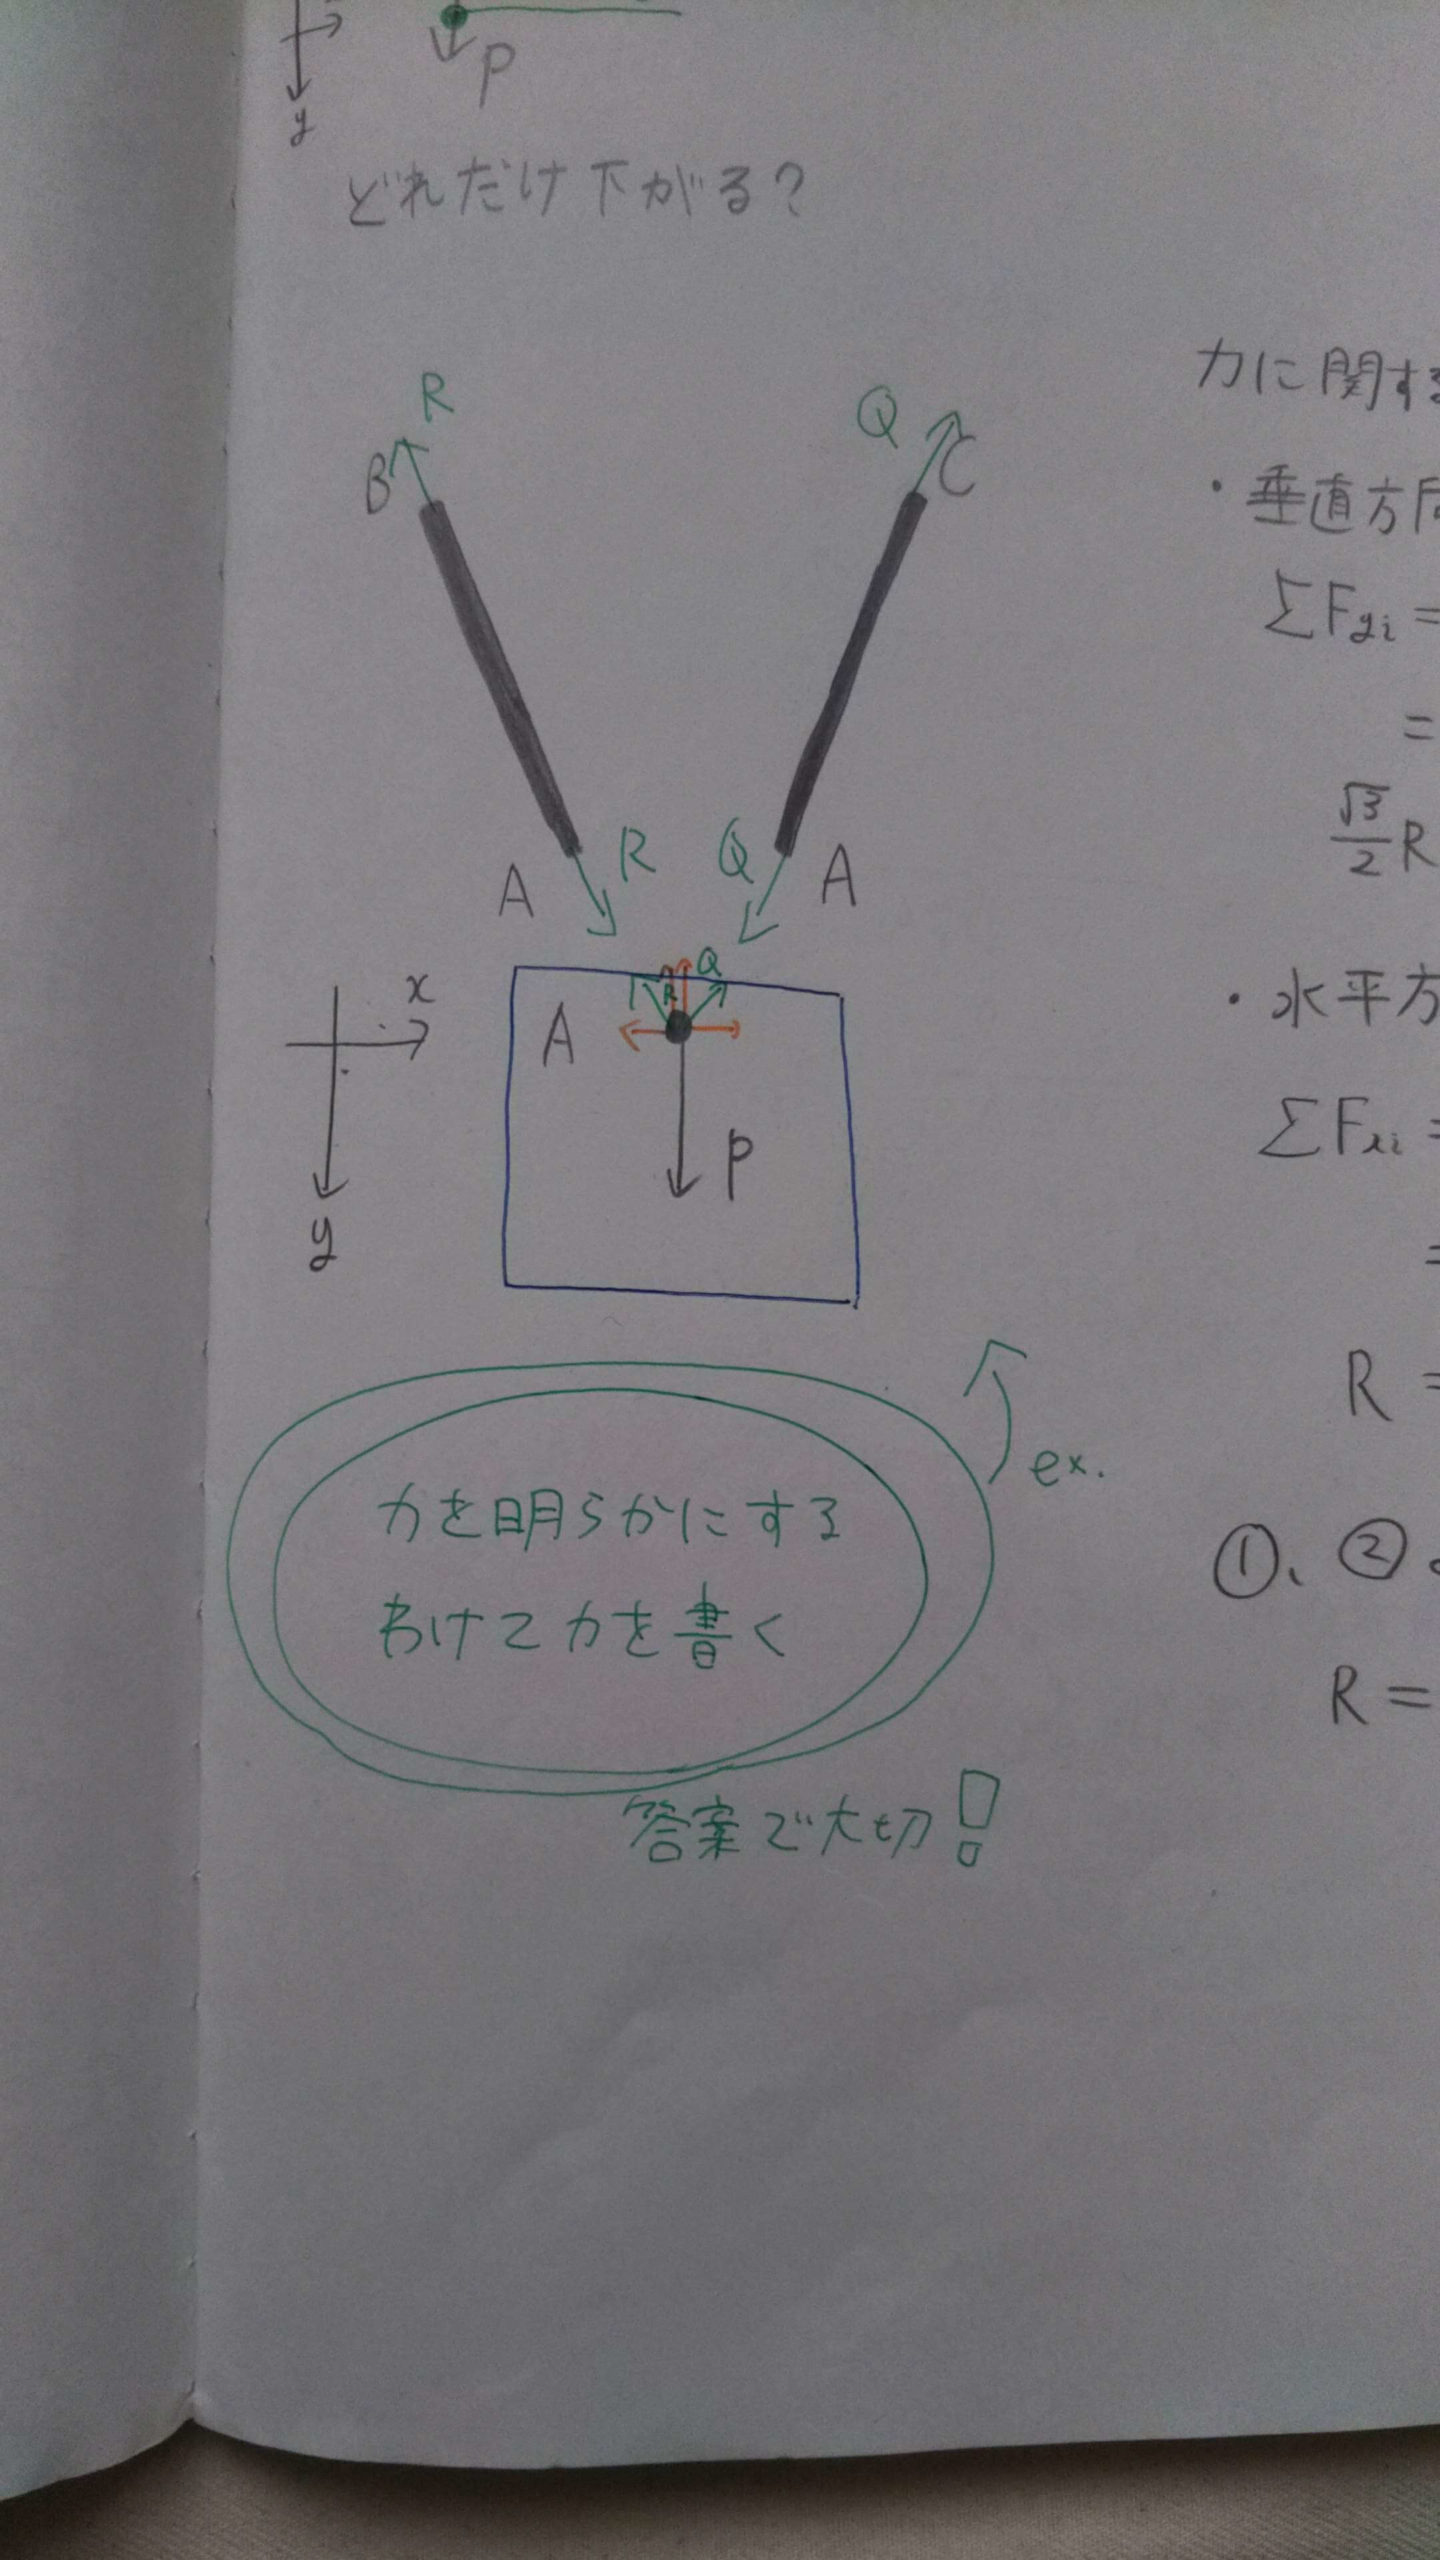 P
y
どれだけ下がる?
R
B
Q
C
A
R
Q
A
x
y
A
R
Q
P
ex.
力を明らかにする
わけて力を書く
答案で大切!
力に関する
・垂直方向
ΣFyi =
=
√3/2 R
・水平方
ΣFxi =
=
R =
①、②
R =